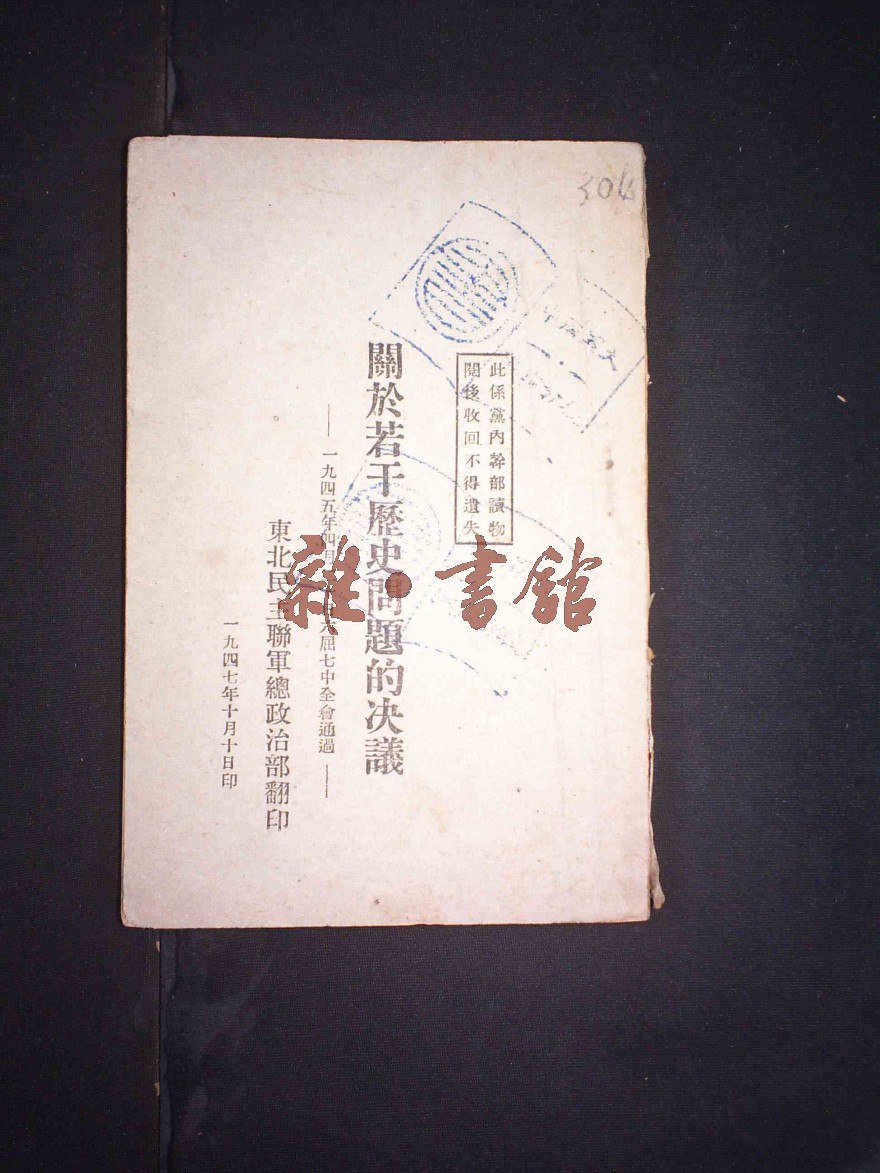 304
此係黨內幹部讀物
閱後收回不得遺失
關於若干歷史問題的決議
—— 一九四五年四月 六屆七中全會通過 ——
東北民主聯軍總政治部翻印
一九四七年十月十日印
雜·書館